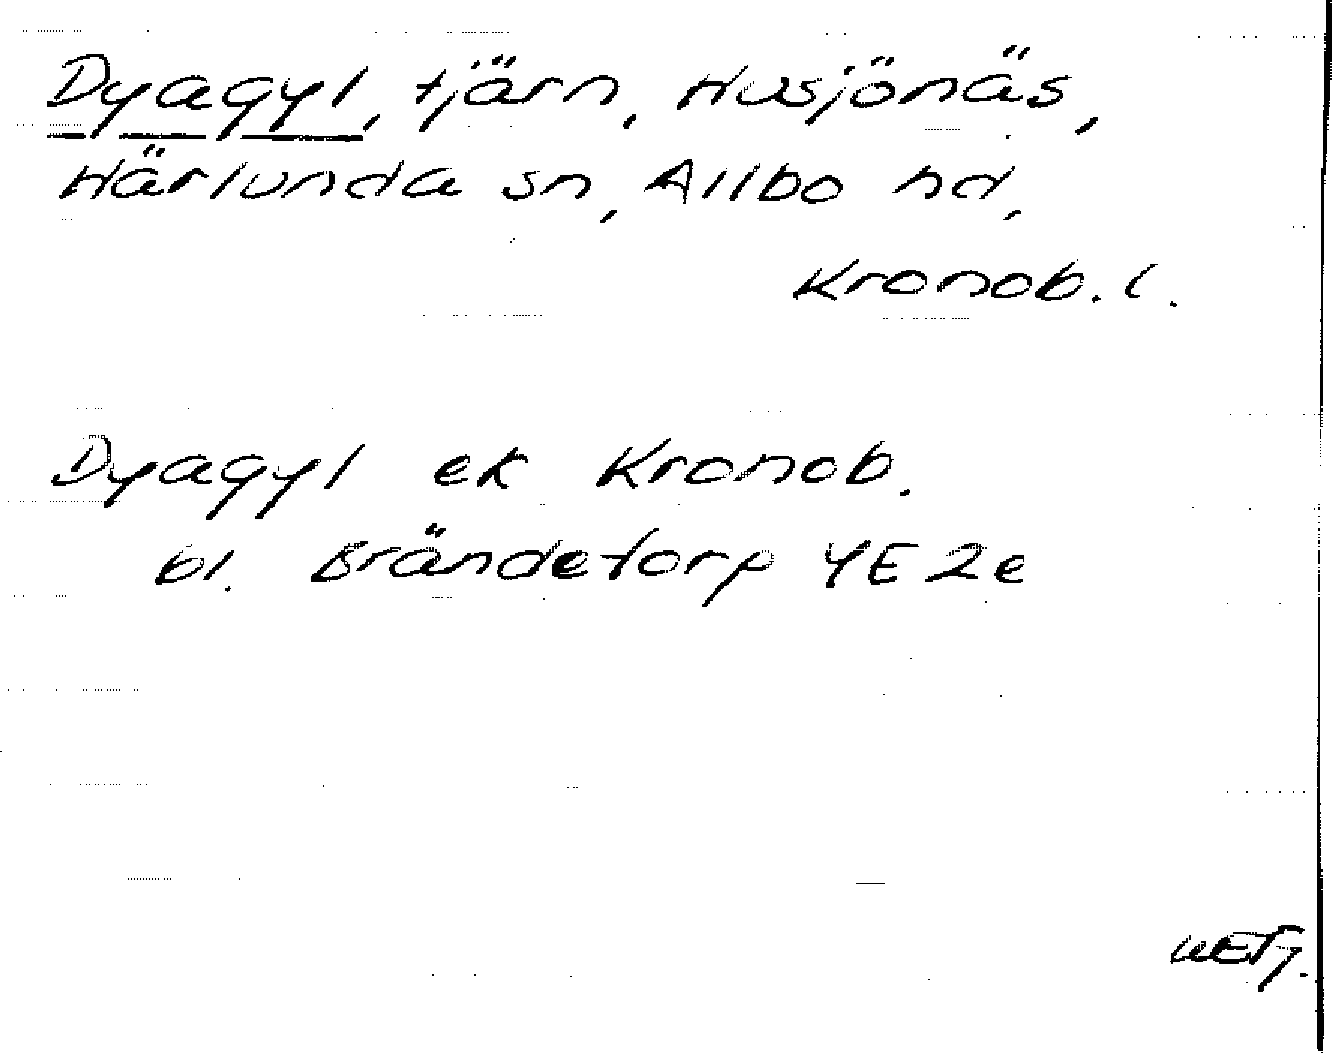 Dyagyl, tjärn, Husjönäs,
Härlunda sn, Allbo hd,
Kronob. l.
Dyagyl ek Kronob.
bl. Brändetorp 4E2e